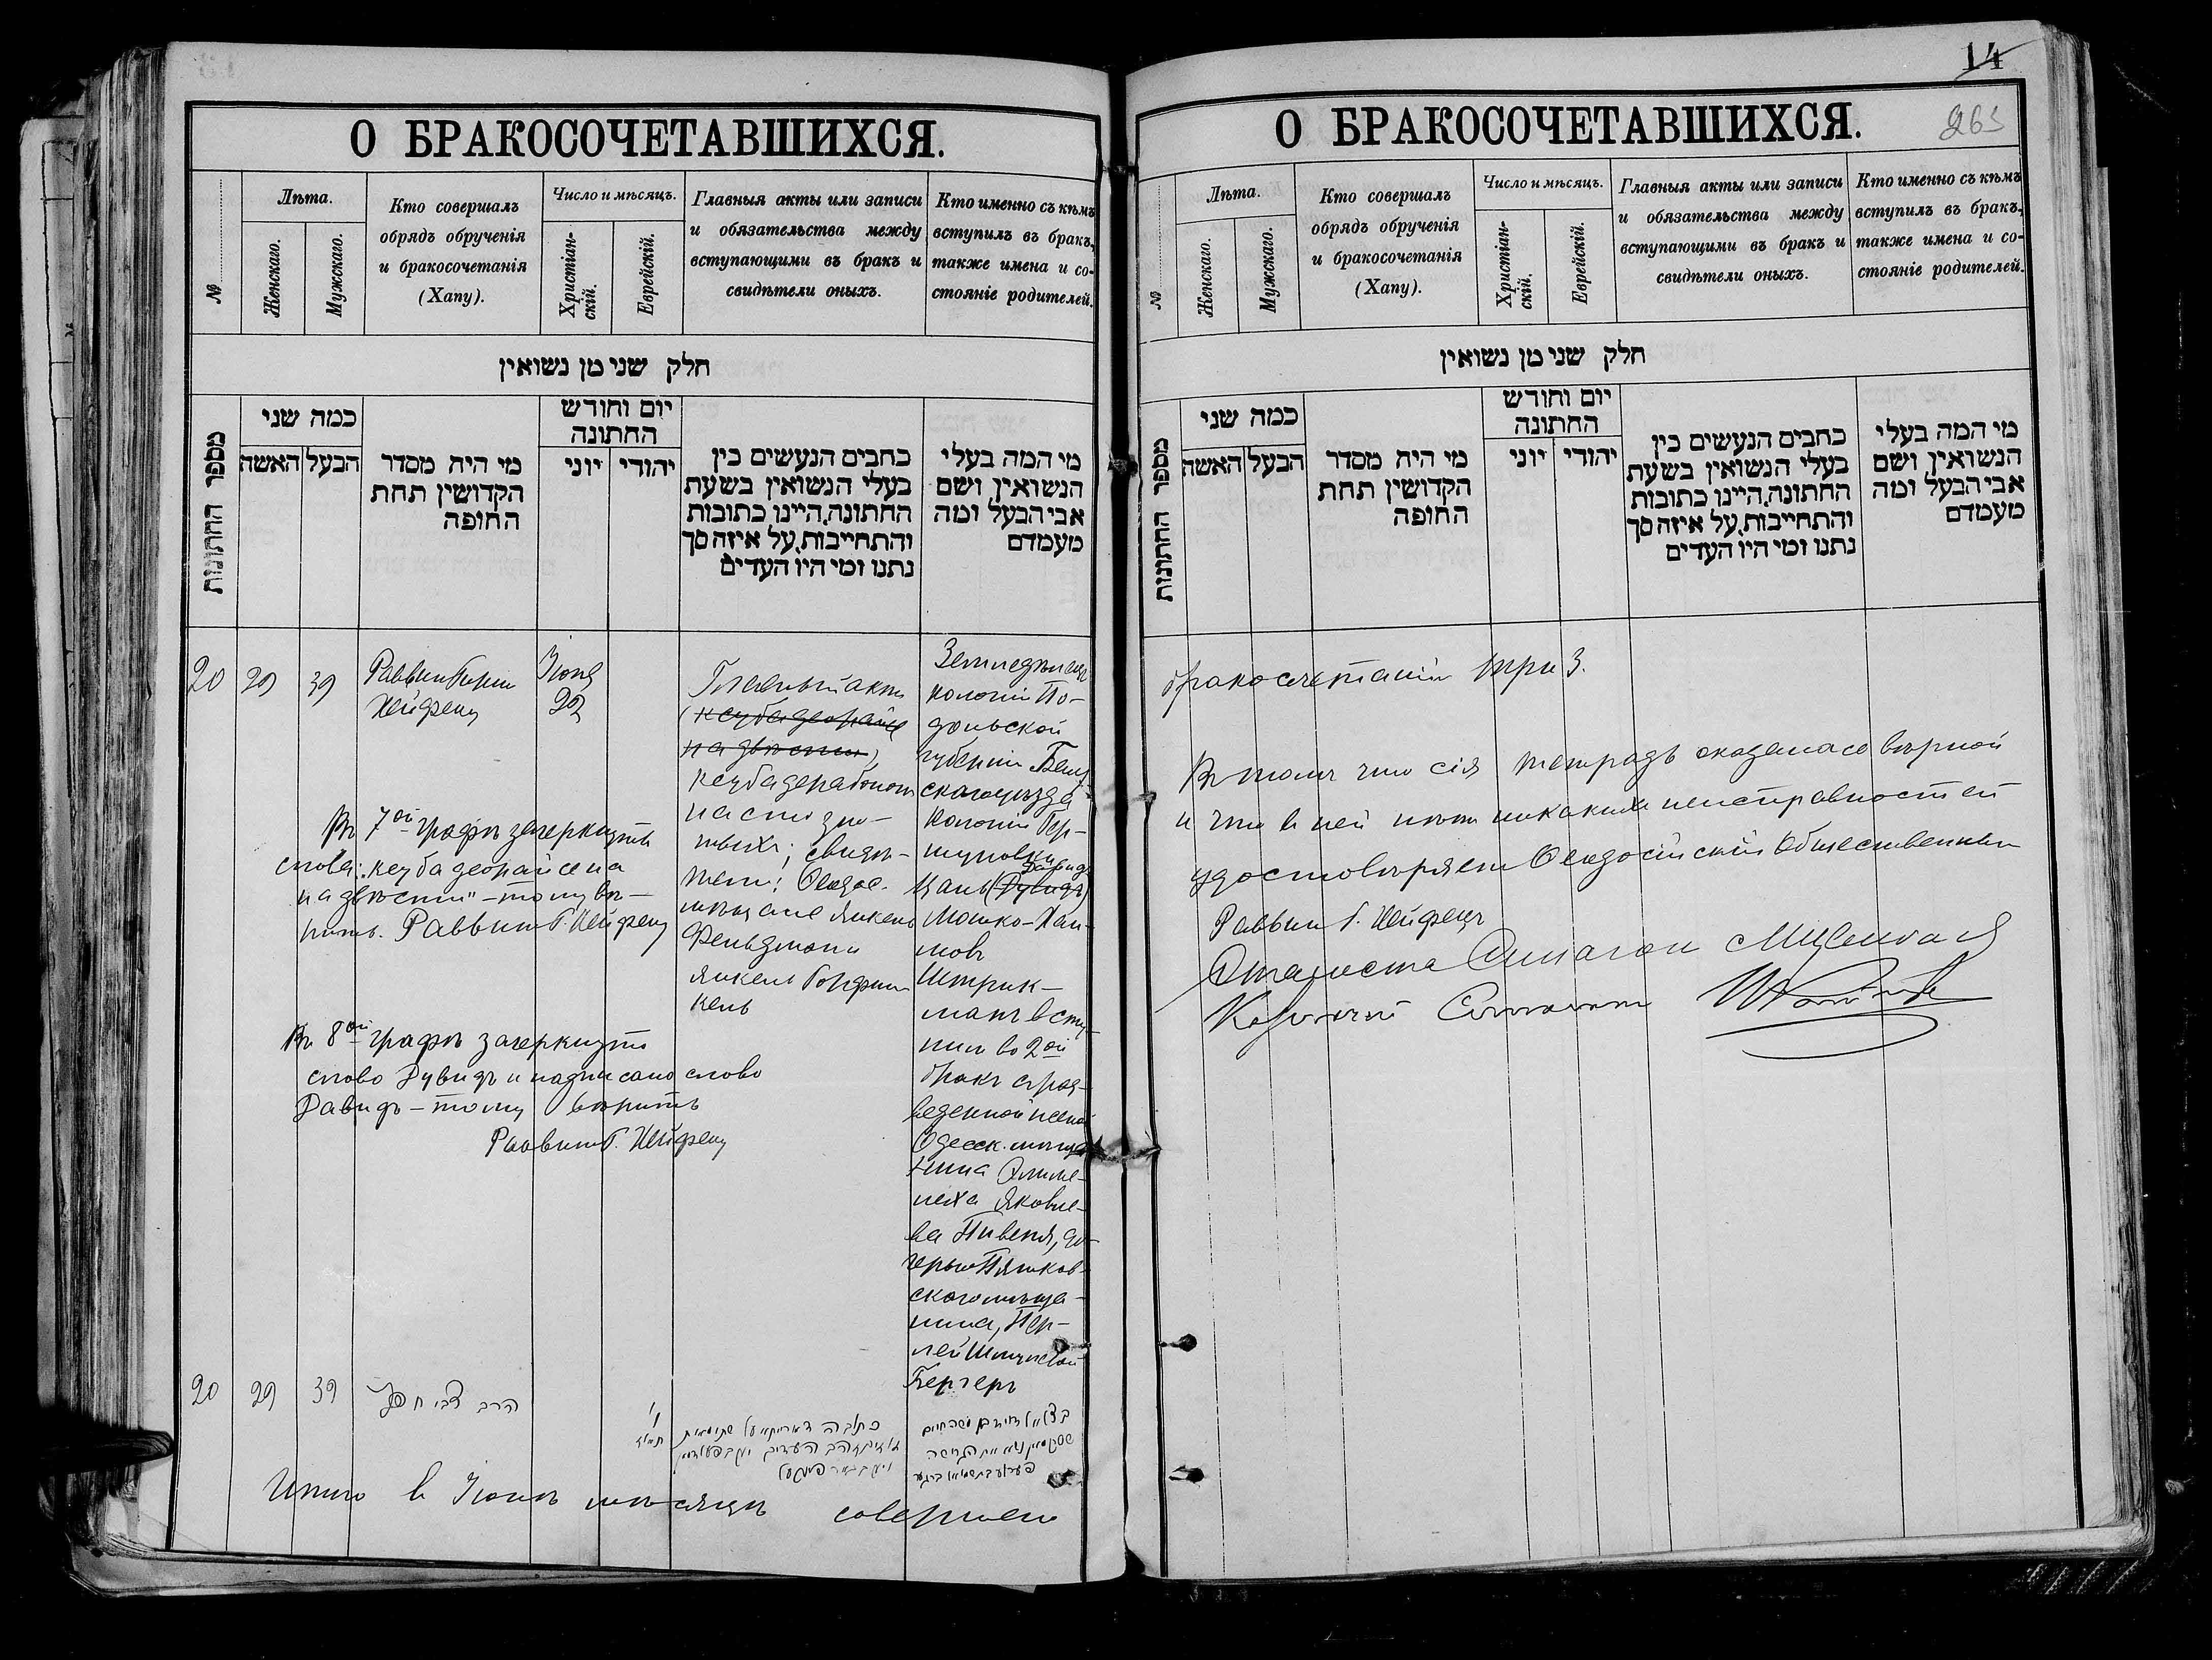 О БРАКОСОЧЕТАВШИХСЯ.
№
Лѣта.
Женскаго.
Мужскаго.
Кто совершалъ
обрядъ обрученія
и бракосочетанія
(Хапу).
Число и мѣсяцъ.
Христіан-
скій.
Еврейскій.
Главныя акты или записи
и обязательства между
вступающими въ бракъ и
свидѣтели оныхъ.
Кто именно съ кѣмъ
вступилъ въ бракъ,
также имена и со-
стояніе родителей.
חלק שני מן נשואין
מספר החתונות
כמה שני
הבעל האשה
מי היה מסדר
הקדושין תחת
החופה
יום וחודש
החתונה
יהודי יוני
כתבים הנעשים בין
בעלי הנשואין בשעת
החתונה, היינו כתובות
והתחייבות, על איזה סך
נתנו ומי היו העדים
מי המה בעלי
הנשואין ושם
אבי הבעל ומה
מעמדם
20
29
39
Раввинъ Гирш
Хейфецъ
Іюня
22
Главный актъ
(кеуба деорайсе
на двѣсти)
кеуба дерабонон
на сто зло-
тыхъ; свидѣ-
тели: Ѳеодос.
мѣщане Янкель
Фельдманъ и
Янкель Гор
кель
Земледѣлецъ
колоніи По-
дольской
губерніи Балт
скаго уѣзда
колоніи Гер-
шуновки
Давидъ
Цаль (Дувидъ)
Мошко-Хаи-
мовъ
Штрик-
манъ всту-
пилъ во 2ой
бракъ съ раз-
веденной женой
Одесск. мѣща
нина
леха Яковле-
ва Пивеня, до-
черью
скаго мѣща-
нина, Пер-
лей Шмулевой
Бергеръ
Въ 7ой графѣ зачеркнуты
слова: „кеуба деорайсе на
на двѣсти" – тому вѣ-
рить. Раввинъ Г. Хейфецъ
Въ 8ой графѣ зачеркнуто
слово Дувидъ и надписано слово
Давидъ – тому вѣрить
Раввинъ Г. Хейфецъ
20
29
39
הרב צבי חפץ
כתובה דאורייתא על
העדים יעקב פעלדמאן
משה חיים
הגרושה
Итого въ Іюнѣ мѣсяцѣ совершено
14
263
О БРАКОСОЧЕТАВШИХСЯ.
№
Лѣта.
Женскаго.
Мужскаго.
Кто совершалъ
обрядъ обрученія
и бракосочетанія
(Хапу).
Число и мѣсяцъ.
Христіан-
скій.
Еврейскій.
Главныя акты или записи
и обязательства между
вступающими въ бракъ и
свидѣтели оныхъ.
Кто именно съ кѣмъ
вступилъ въ бракъ,
также имена и со-
стояніе родителей.
חלק שני מן נשואין
מספר החתונות
כמה שני
הבעל האשה
מי היה מסדר
הקדושין תחת
החופה
יום וחודש
החתונה
יהודי יוני
כתבים הנעשים בין
בעלי הנשואין בשעת
החתונה, היינו כתובות
והתחייבות, על איזה סך
נתנו ומי היו העדים
מי המה בעלי
הנשואין ושם
אבי הבעל ומה
מעמדם
бракосочетаній три 3.
Въ томъ что сія тетрадь оказалась вѣрной
и что въ ней нѣтъ никакихъ неисправностей
удостовѣряетъ Ѳеодосійскій Общественный
Раввинъ Г. Хейфецъ
Староста Синагоги